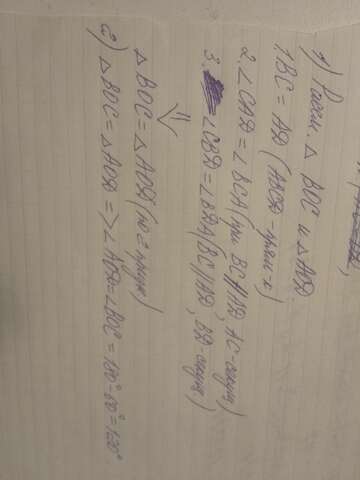 1) Рассм. △ BOC и △ AOD.
1. BC = AD (ABCD - прям-к)
2. ∠ CAD = ∠ BCA (при BC||AD, AC - секущ.)
3. ∠ CBD = ∠ BDA (BC||AD, BD - секущ.)
⇓
△ BOC = △ AOD (по 2 призн.)
2) △ BOC = △ AOD => ∠ AOD = ∠ BOC = 180° - 60° = 120°